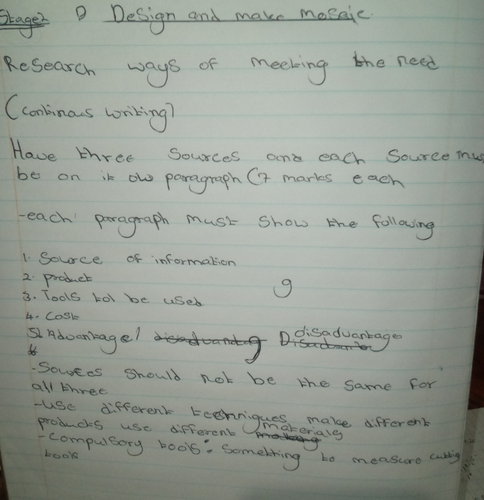 Stage2 D Design and make mosaic
Research ways of meeting the need
(continous writing)
Have three Sources and each Source mus
be on it ow paragraph (7 marks each
-each paragraph must show the following
1. Source of information
2. product
g
3. Tools tol be used
4. Cost
5. Advantage / disadvantag Disadvantage
- Sources should not be the same for
all three
-use different techniques make different
products use different materials
- Compulsory tools: Something to measure cutting
tools